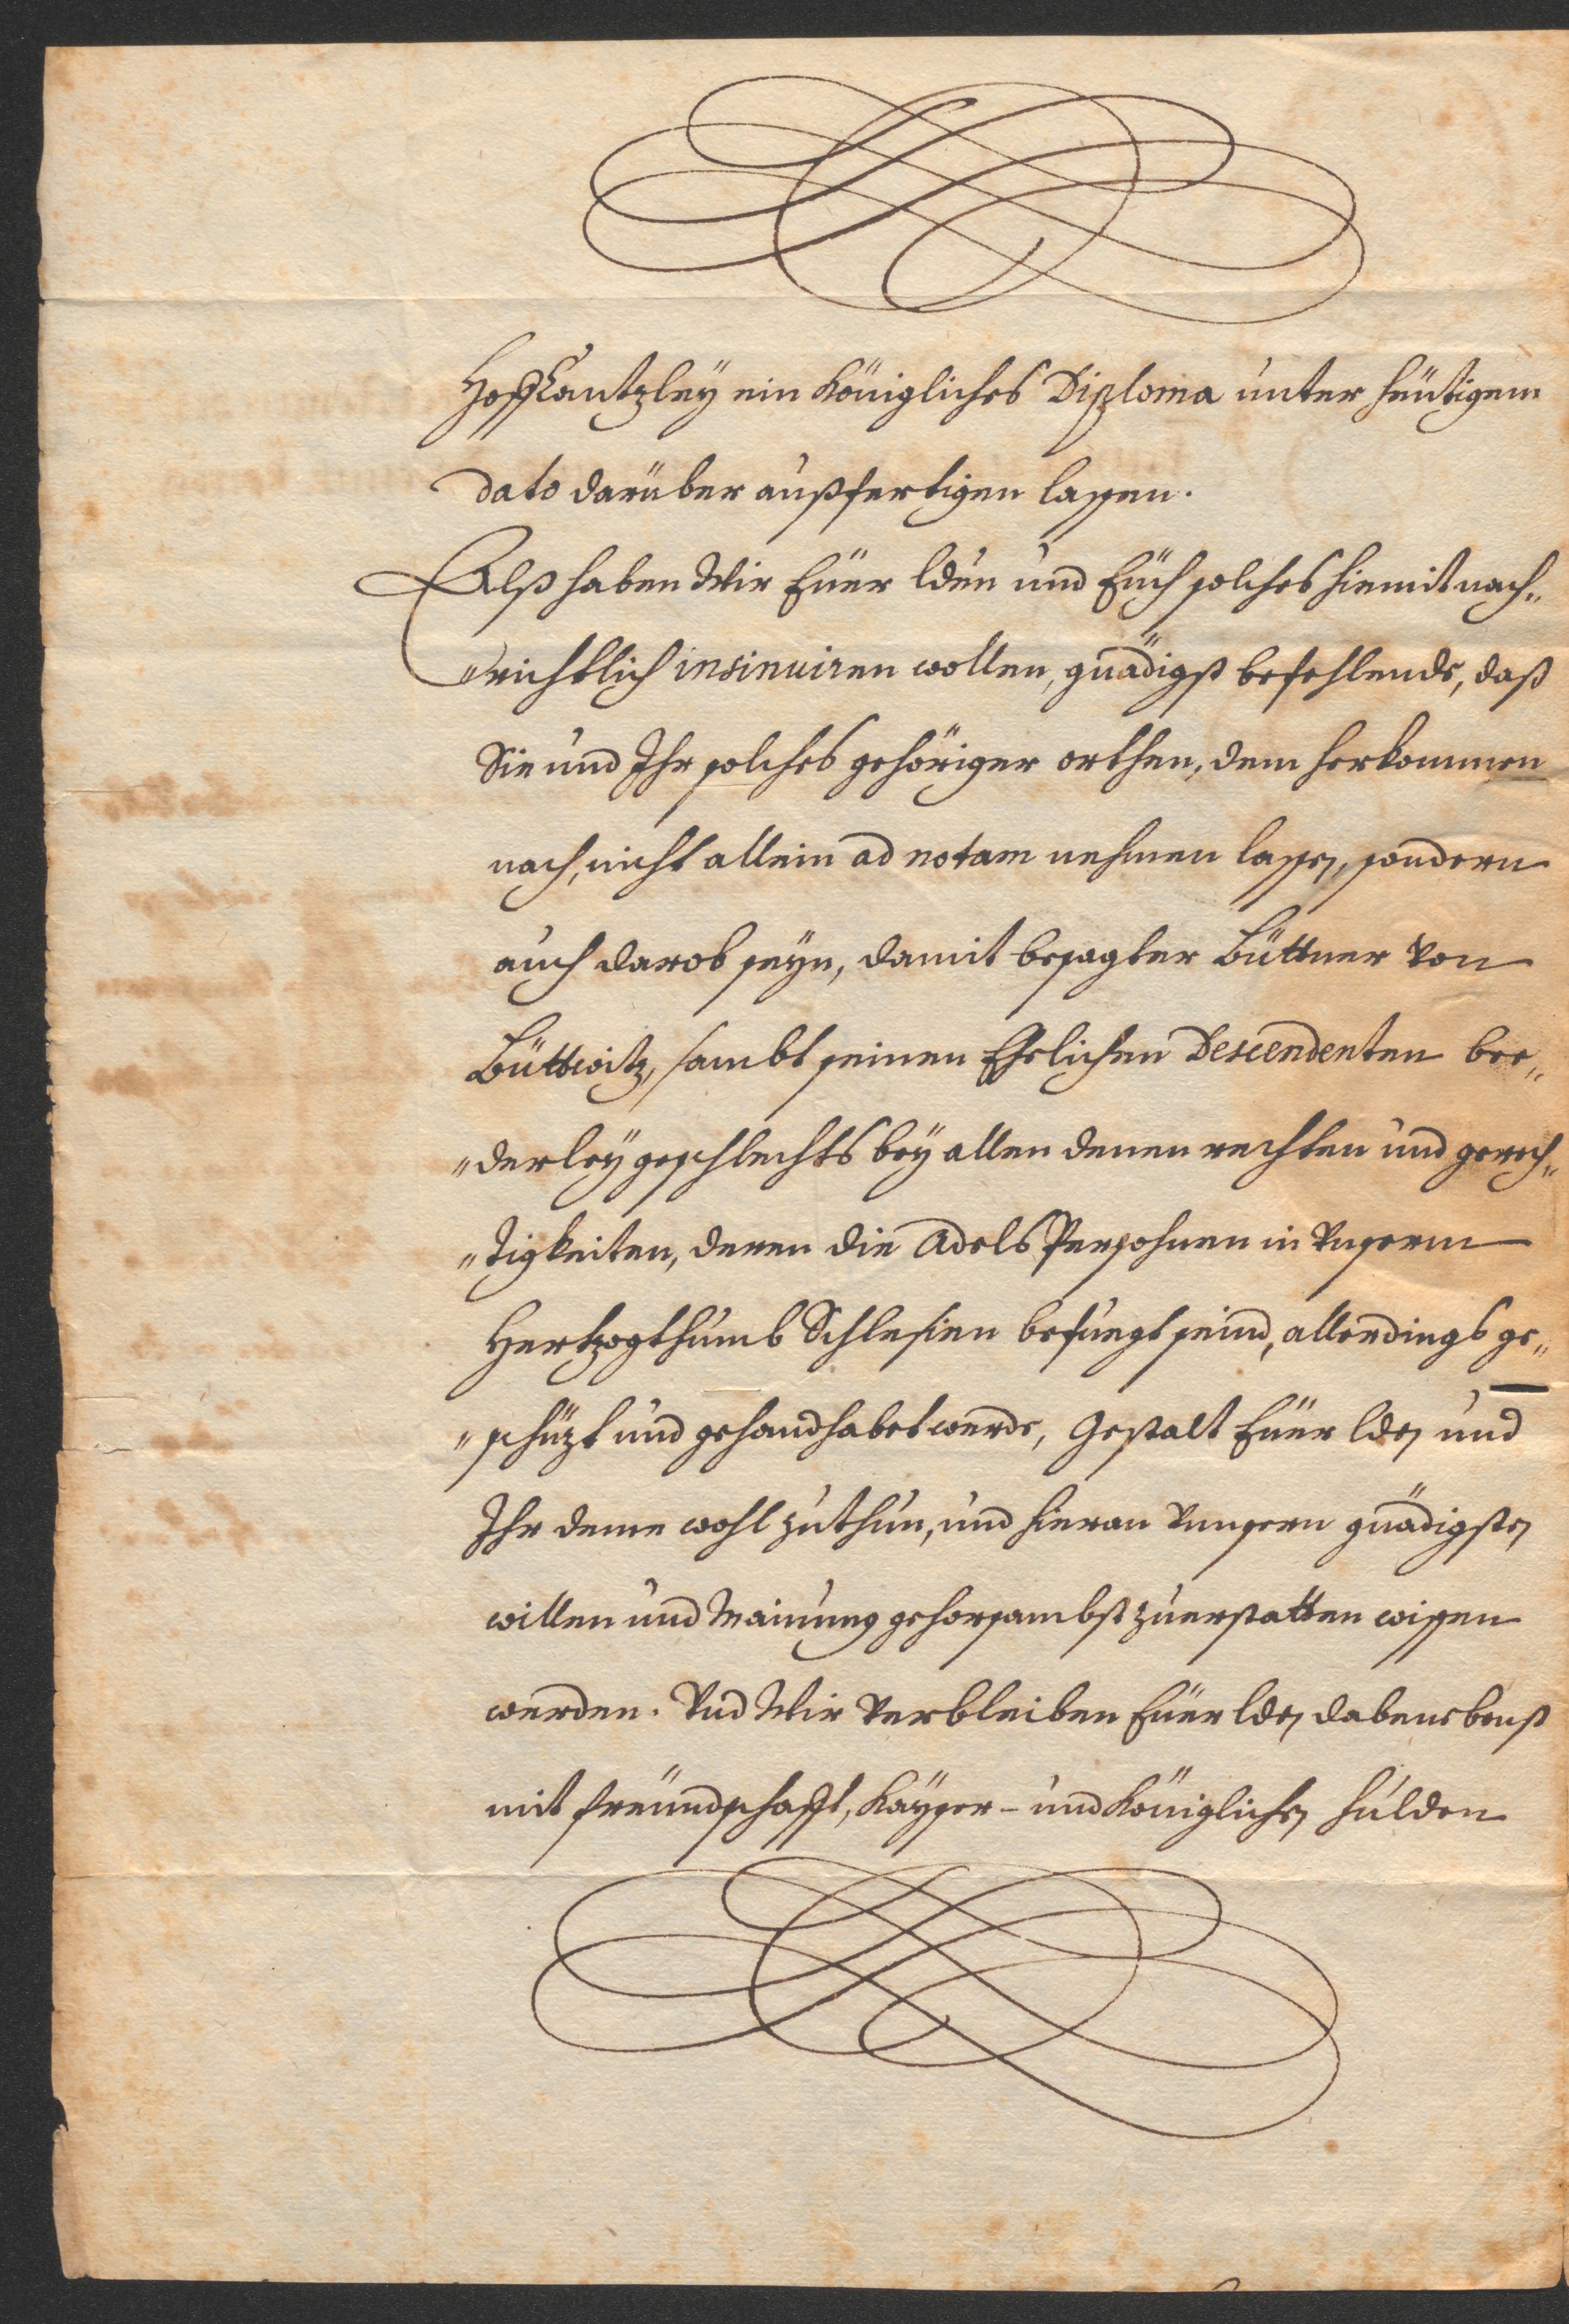 HoffCantzleÿ ein Königliches Diploma unter heütigem
dato darüber außfertigen lassen.
Alß haben Wir Eüer Lden und Eüch solches hiemit nach„
„richtlich insinuiren wollen, gnädigst befehlende, daß
Sie und Ihr solches gehöriger orthen, dem herkommen
nach, nicht allein ad notam nehmen lassen, sondern
auch darob seÿn, damit besagter Büttner von
Büttwitz, sambt seinen Ehelichen Descendenten bee„
„derleÿ geschlechts beÿ allen denen rechten und gerech„
„tigkeiten, deren die Adels Persohnen in Vnserm
Hertzogthumb Schlesien befuegt seind, allerdings ge„
„schüzt und gehandhabet werde, Gestalt Eüer Lden und
Ihr deme wohl zuthun, und hieran Vnnsern gnädigsten
willen und Mainung gehorsambst zuerstatten wissen
werden. Vnd Wir Verbleiben Eüer Lden dabenebenst
mit freündschafft, Kaÿser- und Königlichen hulden